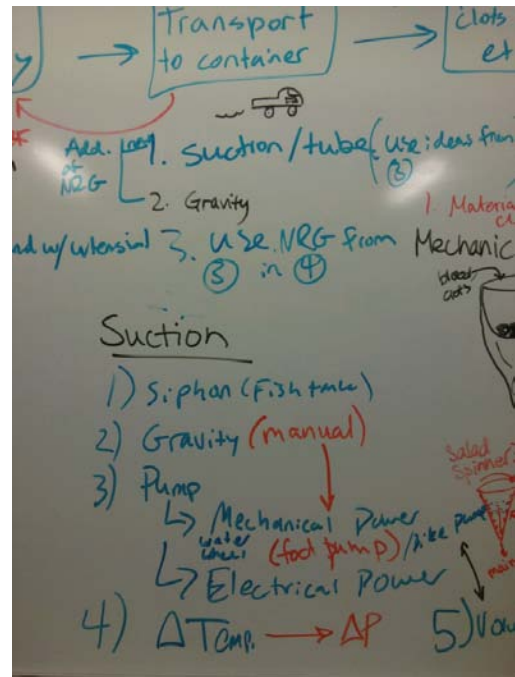 Transport
to container
clots
et
y
Add.
of
NRG
1. suction/tube (use ideas from
③
2. Gravity
1. Material
nd w/utensial 3. use NRG from
③ in ④
Mechanic
blood
clots
Suction
1) Siphon (Fish tank)
2) Gravity (manual)
3) Pump
Salad
Spinner
↳ Mechanical Power
water
wheel
(foot pump)/bike pump
↳ Electrical Power
4) ΔTemp. → ΔP
5) Volu